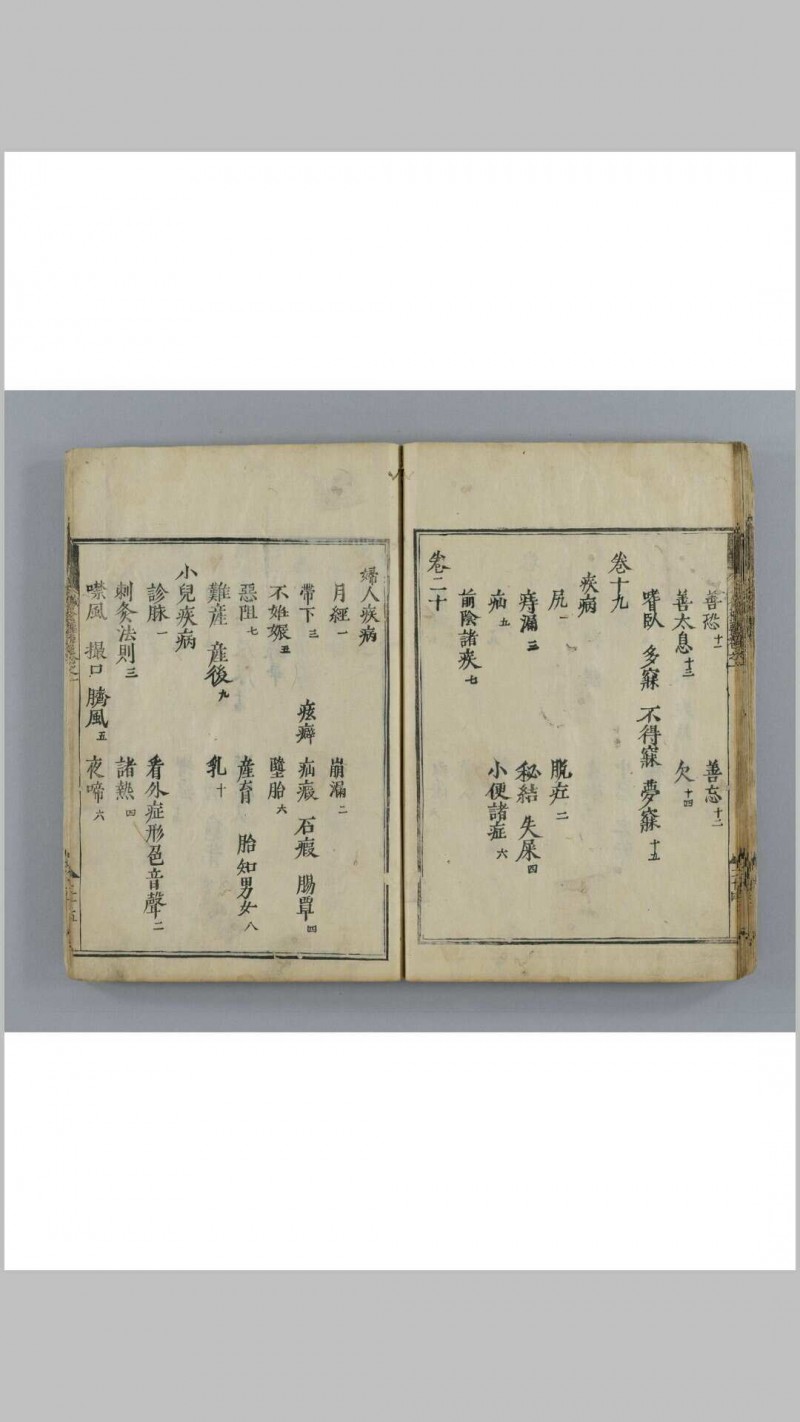 善恐十一 善忘十二
善太息十三 欠十四
嗜臥 多寐 不得寐 夢寐十五
卷十九
疾病
尻一 脫疘二
痔漏三 秘結 失屎四
疝五 小便諸症六
前陰諸疾七
卷二十
婦人疾病
月經一 崩漏二
帶下三 痃癖 疝瘕 石瘕 腸覃四
不姙娠五 墮胎六
惡阻七 產育 胎知男女八
難產 產後九 乳十
小兒疾病
診脉一 看外症形色音聲二
刺灸法則三 諸熱四
噤風 撮口 臍風五 夜啼六